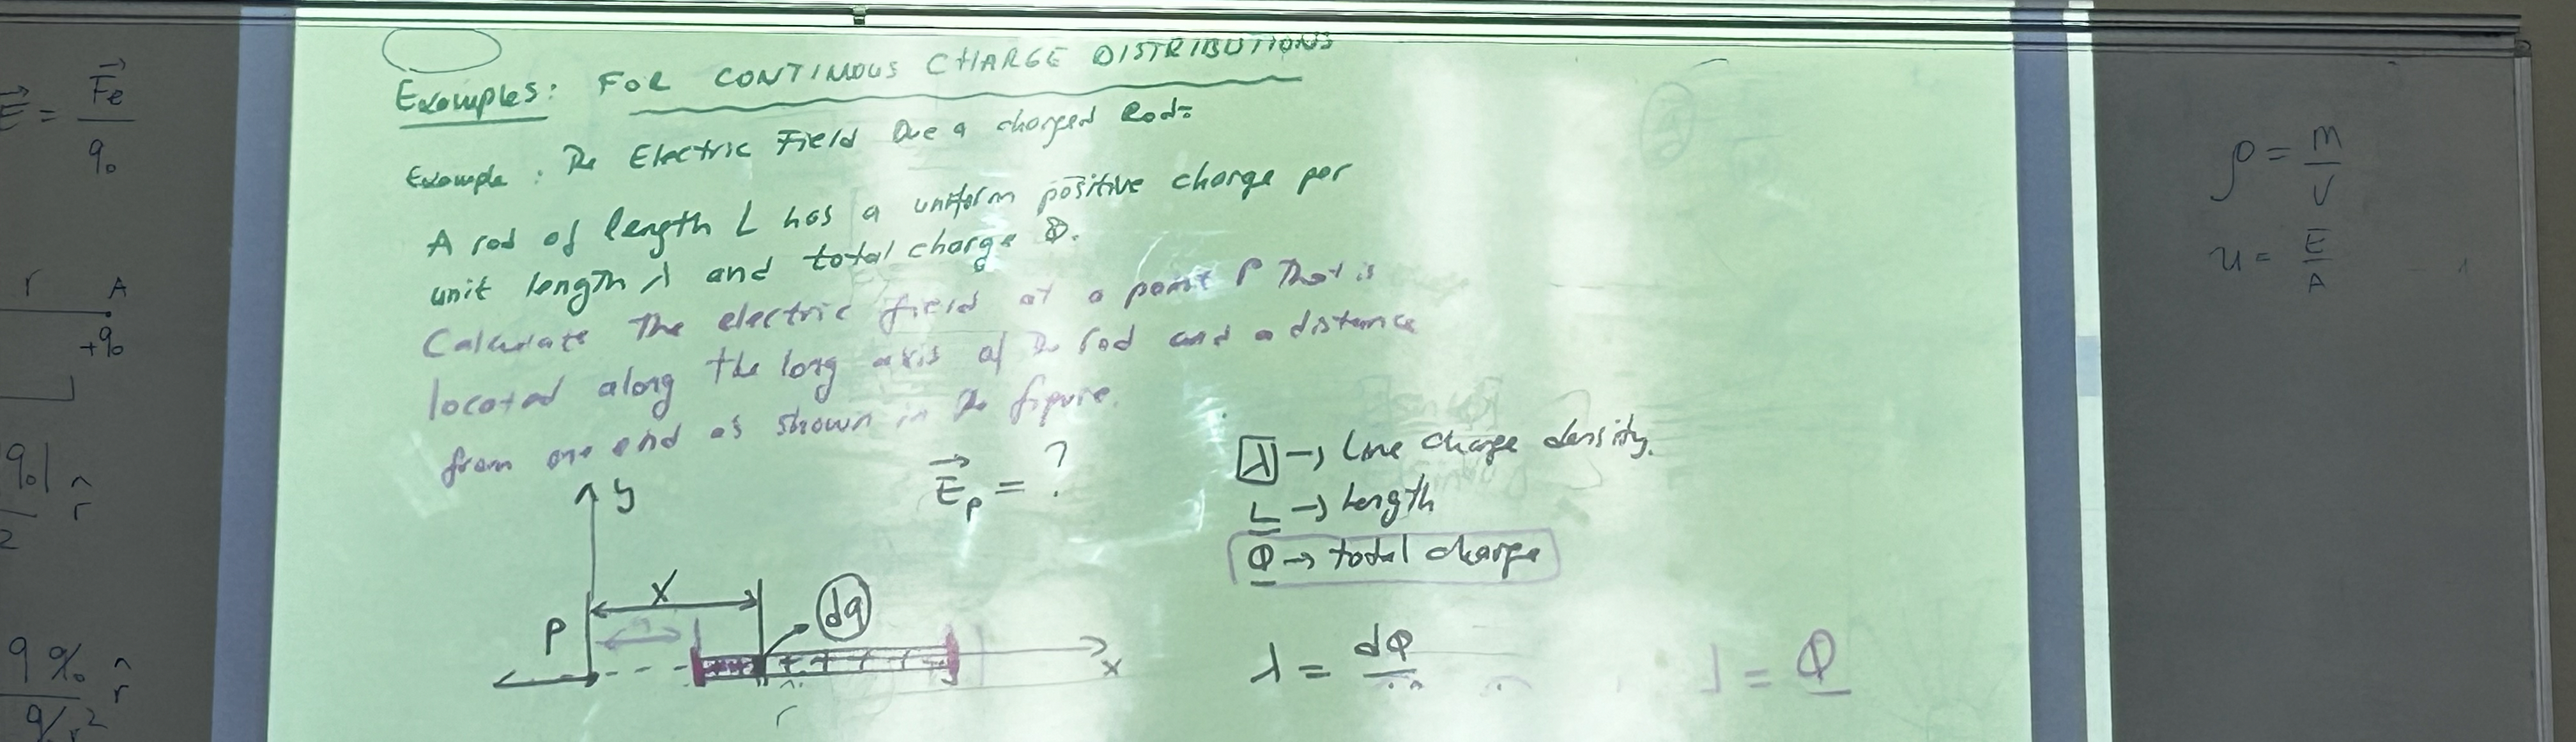 Examples: FOR CONTINUOUS CHARGE DISTRIBUTIONS
Example: The Electric Field Due a charged Rod:
A rod of length L has a uniform positive charge per
unit length λ and total charge Q.
Calculate The electric field at a point P That is
located along the long axis of the rod and a distance
from one end as shown in the figure.
E⃗p = ?
λ → Line charge density.
L → Length
Q → total charge
y
X
dq
a
P
x
λ = dQ
λ = Q
E⃗ = F⃗e / q₀
r A
+q₀
q₀| r̂
2
q q₀ r̂
ρ = m / V
u = E / A